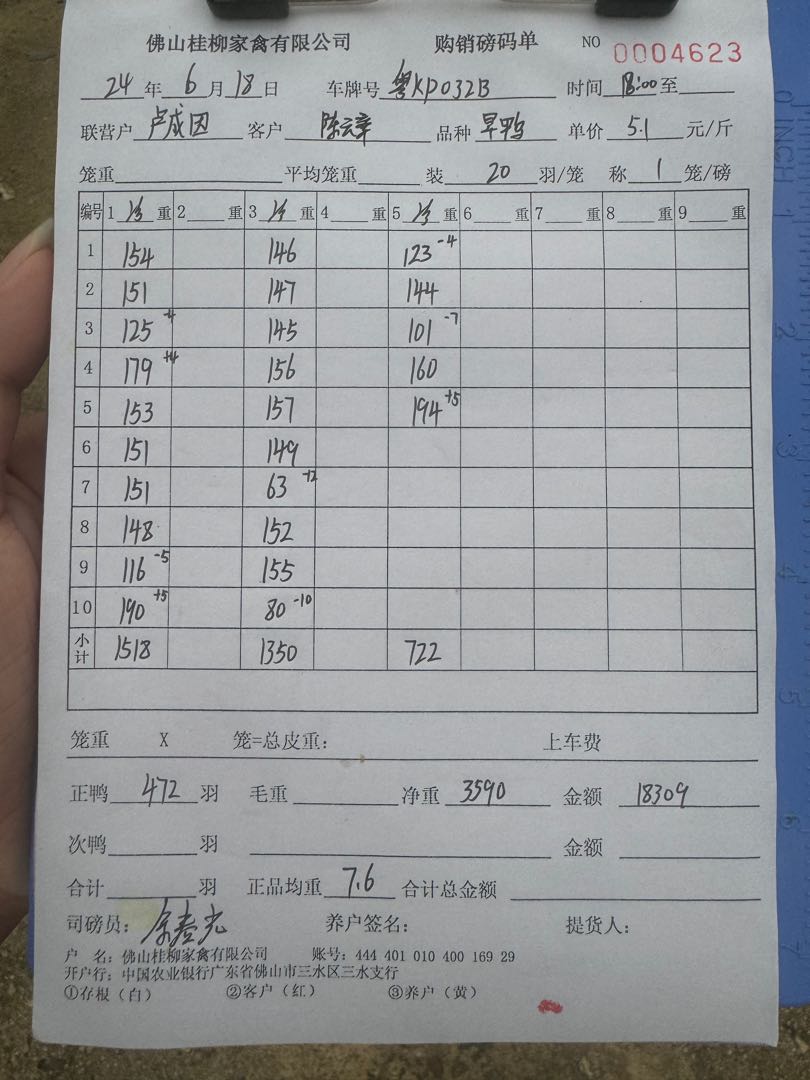 佛山桂柳家禽有限公司 购销磅码单 NO 0004623
24 年 6 月 18 日 车牌号 粤KP032B 时间 18:00 至
联营户 卢成因 客户 陈云章 品种 旱鸭 单价 5.1 元/斤
笼重 平均笼重 装 20 羽/笼 称 1 笼/磅
编号 1 净 重 2 重 3 净 重 4 重 5 净 重 6 重 7 重 8 重 9 重
1 154 146 123 -4
2 151 147 144
3 125 145 101 -7
4 179 +4 156 160
5 153 157 194 +5
6 151 149
7 151 63
8 148 152
9 116 -5 155
10 190 +5 80 -10
小计 1518 1350 722
笼重 X 笼=总皮重: 上车费
正鸭 472 羽 毛重 净重 3590 金额 18309
次鸭 羽 金额
合计 羽 正品均重 7.6 合计总金额
司磅员: 养户签名: 提货人:
户 名: 佛山桂柳家禽有限公司 账号: 444 401 010 400 169 29
开户行: 中国农业银行广东省佛山市三水区三水支行
①存根(白) ②客户(红) ③养户(黄)